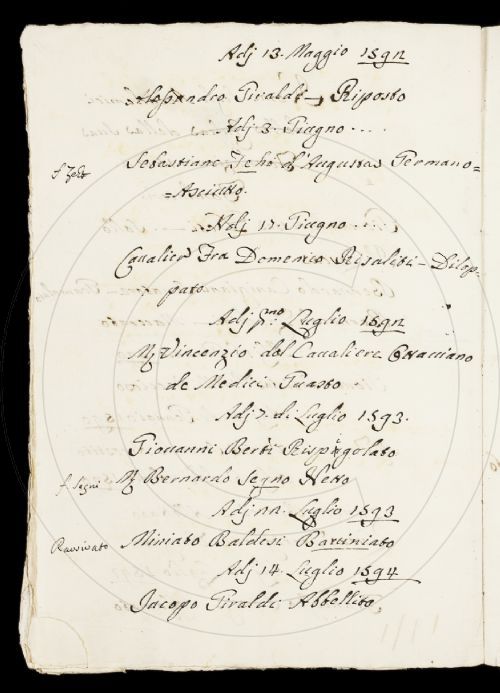 Adj 13. Maggio 1592
Alessandro Giraldi — Riposto
Adj 3. Giugno . . . .
Sebastiano Zehö d'Augustas Germano=
f. Zehö
=Asciutto,
Adj 17. Giugno . . . ,
Cavalier Fra Domenico Risaliti — Dilop-
pato
Adj p.mo Luglio 1592
M. Vincenzio del Cavaliere Ottaviano
de Medici Guasto
Adj 7. di Luglio 1593.
Giovanni Berti Rispigolato
f. Segni
M. Bernardo Segno Netto
Adj 22. Luglio 1593
Ravvivato
Miniato Baldesi Barciniato
Adj 14. Luglio 1594
Jacopo Giraldi Abbellito,